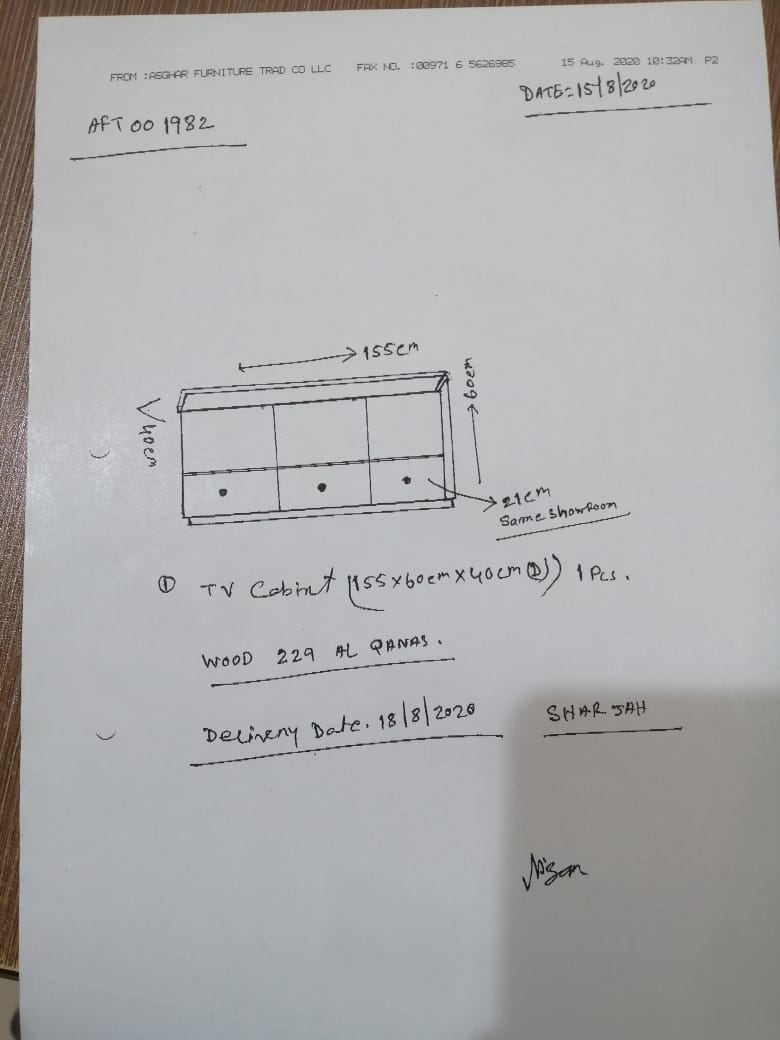 FROM :ASGHAR FURNITURE TRAD CO LLC FAX NO. :00971 6 5626985 15 Aug. 2020 10:32AM P2
DATE=15/8/2020
AFT 00 1982
155cm
60cm
40cm
21cm
Same showRoom
① TV Cabint (155x60cmx40cm(D)) 1 Pcs.
WOOD 229 AL QANAS.
Delivery Date. 18/8/2020 SHARJAH